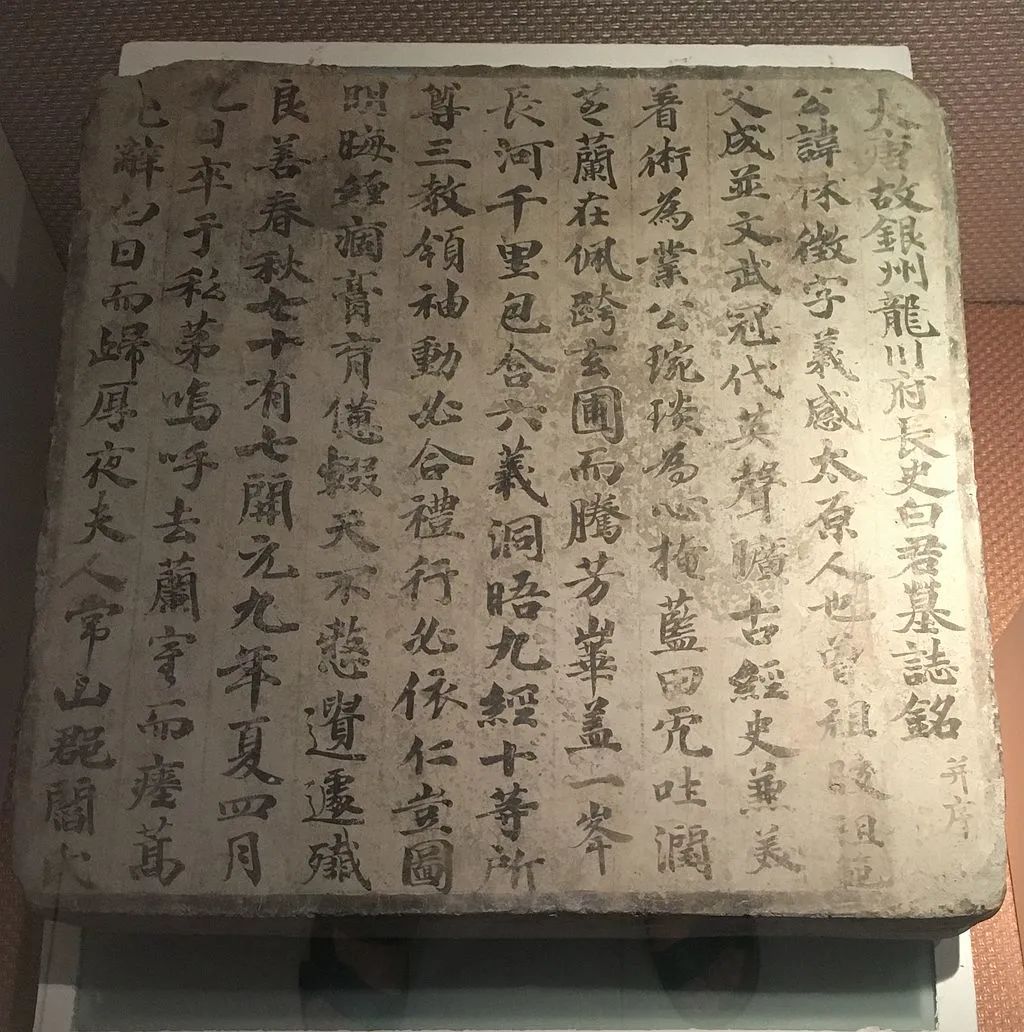 大唐故銀州龍川府長史白君墓誌銘 并序
公諱休徵字義感太原人也曾祖陵祖
父成並文武冠代英聲曠古經史兼美
著術為業公琬琰為心掩藍田而吐潤
芝蘭在佩跨玄圃而騰芳崋蓋一峯
長河千里包含六義洞晤九經十等所
尊三教領袖動必合禮行必依仁豈圖
明晦纏痾膏肓僊輟天不憖遺遽殲
良善春秋七十有七開元九年夏四月
九日卒于私苐嗚呼去蘭室而瘞萬
辭白日而歸厚夜夫人常山郡閻氏